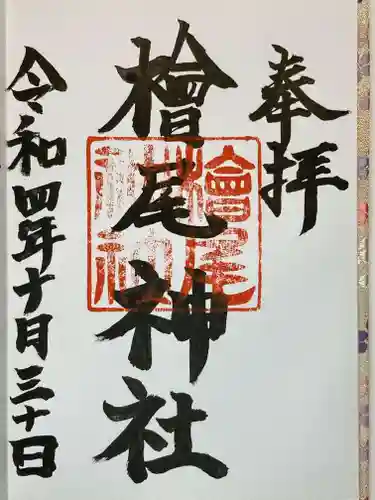 奉拝
檜尾神社
令和四年十月三十日
檜尾
神社